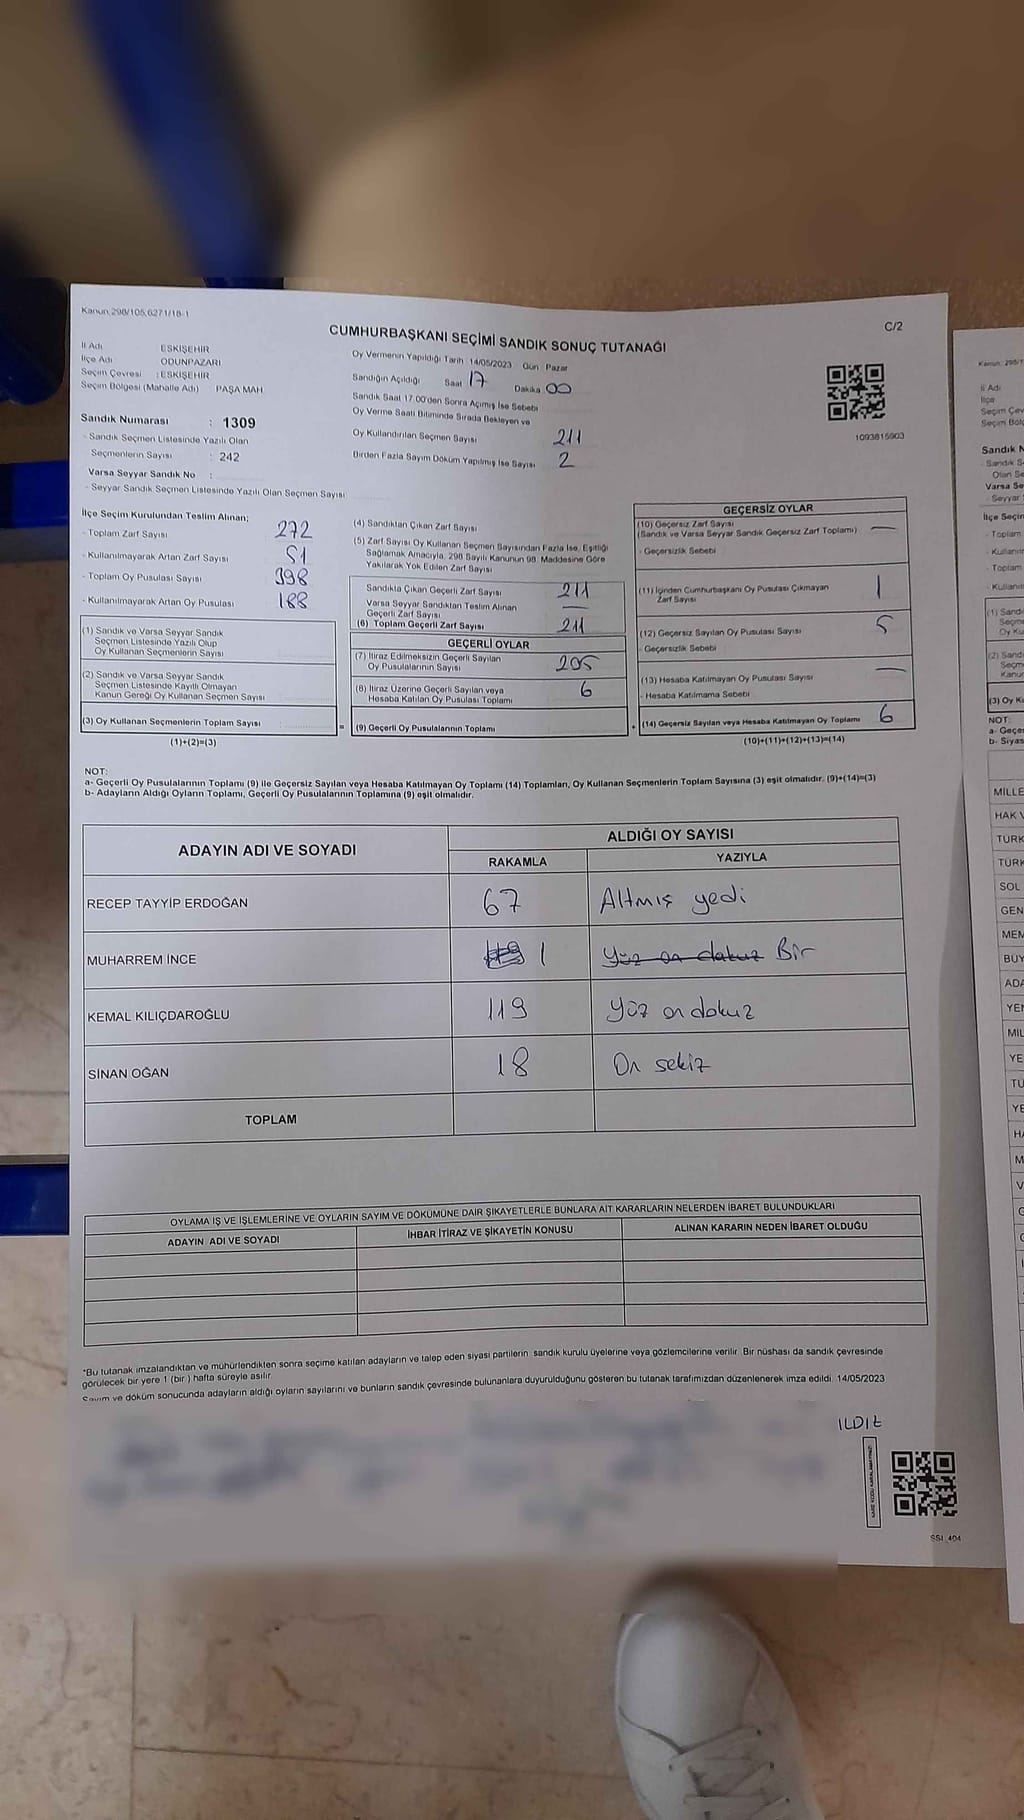 Kanun:298/105,6271/18-1
C/2
CUMHURBAŞKANI SEÇİMİ SANDIK SONUÇ TUTANAĞI
İl Adı ESKİŞEHİR
İlçe Adı ODUNPAZARI
Seçim Çevresi : ESKİŞEHİR
Seçim Bölgesi (Mahalle Adı) PAŞA MAH
Oy Vermenin Yapıldığı Tarih 14/05/2023 Gün Pazar
Sandığın Açıldığı Saat 17 Dakika 00
Sandık Saat 17:00'den Sonra Açımış İse Sebebi
Oy Verme Saati Bitiminde Sırada Bekleyen ve
Oy Kullandırılan Seçmen Sayısı 211
Birden Fazla Sayım Döküm Yapılmış İse Sayısı 2
1093815903
Sandık Numarası : 1309
- Sandık Seçmen Listesinde Yazılı Olan
Seçmenlerin Sayısı : 242
Varsa Seyyar Sandık No :
- Seyyar Sandık Seçmen Listesinde Yazılı Olan Seçmen Sayısı
İlçe Seçim Kurulundan Teslim Alınan;
- Toplam Zarf Sayısı 272
- Kullanılmayarak Artan Zarf Sayısı 51
- Toplam Oy Pusulası Sayısı 398
- Kullanılmayarak Artan Oy Pusulası 188
(1) Sandık ve Varsa Seyyar Sandık
Seçmen Listesinde Yazılı Olup
Oy Kullanan Seçmenlerin Sayısı
(2) Sandık ve Varsa Seyyar Sandık
Seçmen Listesinde Kayıtlı Olmayan
Kanun Gereği Oy Kullanan Seçmen Sayısı
(3) Oy Kullanan Seçmenlerin Toplam Sayısı =
(1)+(2)=(3)
(4) Sandıktan Çıkan Zarf Sayısı
(5) Zarf Sayısı Oy Kullanan Seçmen Sayısından Fazla İse, Eşitliği
Sağlamak Amacıyla, 298 Sayılı Kanunun 98. Maddesine Göre
Yakılarak Yok Edilen Zarf Sayısı
Sandıkta Çıkan Geçerli Zarf Sayısı 211
Varsa Seyyar Sandıktan Teslim Alınan
Geçerli Zarf Sayısı —
(6) Toplam Geçerli Zarf Sayısı 211
GEÇERLİ OYLAR
(7) İtiraz Edilmeksizin Geçerli Sayılan
Oy Pusulalarının Sayısı 205
(8) İtiraz Üzerine Geçerli Sayılan veya
Hesaba Katılan Oy Pusulası Toplamı 6
(9) Geçerli Oy Pusulalarının Toplamı +
GEÇERSİZ OYLAR
(10) Geçersiz Zarf Sayısı
(Sandık ve Varsa Seyyar Sandık Geçersiz Zarf Toplamı) —
- Geçersizlik Sebebi
(11) İçinden Cumhurbaşkanı Oy Pusulası Çıkmayan
Zarf Sayısı 1
(12) Geçersiz Sayılan Oy Pusulası Sayısı 5
- Geçersizlik Sebebi
(13) Hesaba Katılmayan Oy Pusulası Sayısı —
- Hesaba Katılmama Sebebi
(14) Geçersiz Sayılan veya Hesaba Katılmayan Oy Toplamı 6
(10)+(11)+(12)+(13)=(14)
NOT:
a- Geçerli Oy Pusulalarının Toplamı (9) ile Geçersiz Sayılan veya Hesaba Katılmayan Oy Toplamı (14) Toplamları, Oy Kullanan Seçmenlerin Toplam Sayısına (3) eşit olmalıdır. (9)+(14)=(3)
b- Adayların Aldığı Oyların Toplamı, Geçerli Oy Pusulalarının Toplamına (9) eşit olmalıdır.
ADAYIN ADI VE SOYADI ALDIĞI OY SAYISI
RAKAMLA YAZIYLA
RECEP TAYYİP ERDOĞAN 67 Altmış yedi
MUHARREM İNCE 119 1 Yüz on dokuz Bir
KEMAL KILIÇDAROĞLU 119 Yüz on dokuz
SİNAN OĞAN 18 On sekiz
TOPLAM
OYLAMA İŞ VE İŞLEMLERİNE VE OYLARIN SAYIM VE DÖKÜMÜNE DAİR ŞİKAYETLERLE BUNLARA AİT KARARLARIN NELERDEN İBARET BULUNDUKLARI
ADAYIN ADI VE SOYADI İHBAR İTİRAZ VE ŞİKAYETİN KONUSU ALINAN KARARIN NEDEN İBARET OLDUĞU
*Bu tutanak imzalandıktan ve mühürlendikten sonra seçime katılan adayların ve talep eden siyasi partilerin sandık kurulu üyelerine veya gözlemcilerine verilir. Bir nüshası da sandık çevresinde
görülecek bir yere 1 (bir ) hafta süreyle asılır.
Sayım ve döküm sonucunda adayların aldığı oyların sayılarını ve bunların sandık çevresinde bulunanlara duyurulduğunu gösteren bu tutanak tarafımızdan düzenlenerek imza edildi. 14/05/2023
ILDIZ
SSI_404
Kanun: 298/1
İl Adı
İlçe
Seçim Çev
Seçim Böl
Sandık N
- Sandık
Olan Se
Varsa Se
- Seyyar
İlçe Seçin
- Toplam
- Kullanılı
- Toplam
- Kullanılı
(1) Sandı
Seçme
Oy Ku
(2) Sandı
Seçme
Kanun
(3) Oy Ku
NOT:
a- Geçe
b- Siyas
MİLLE
HAK V
TÜRK
TÜRK
SOL
GEN
MEM
BÜY
ADA
YEN
MİL
YE
TÜ
YE
HA
M
V